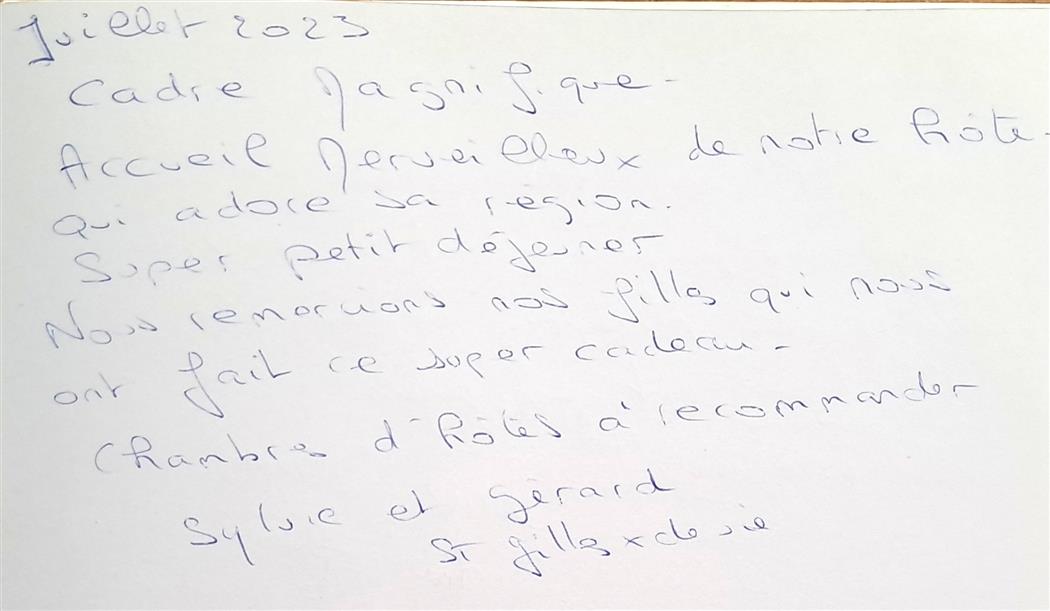 Juillet 2023
Cadre Magnifique -
Accueil Merveilleux de notre hôte.
qui adore sa région.
Super petit déjeuner
Nous remercions nos filles qui nous
ont fait ce super cadeau -
Chambres d'hôtes à recommander
Sylvie et Gérard
St gilles x de vie